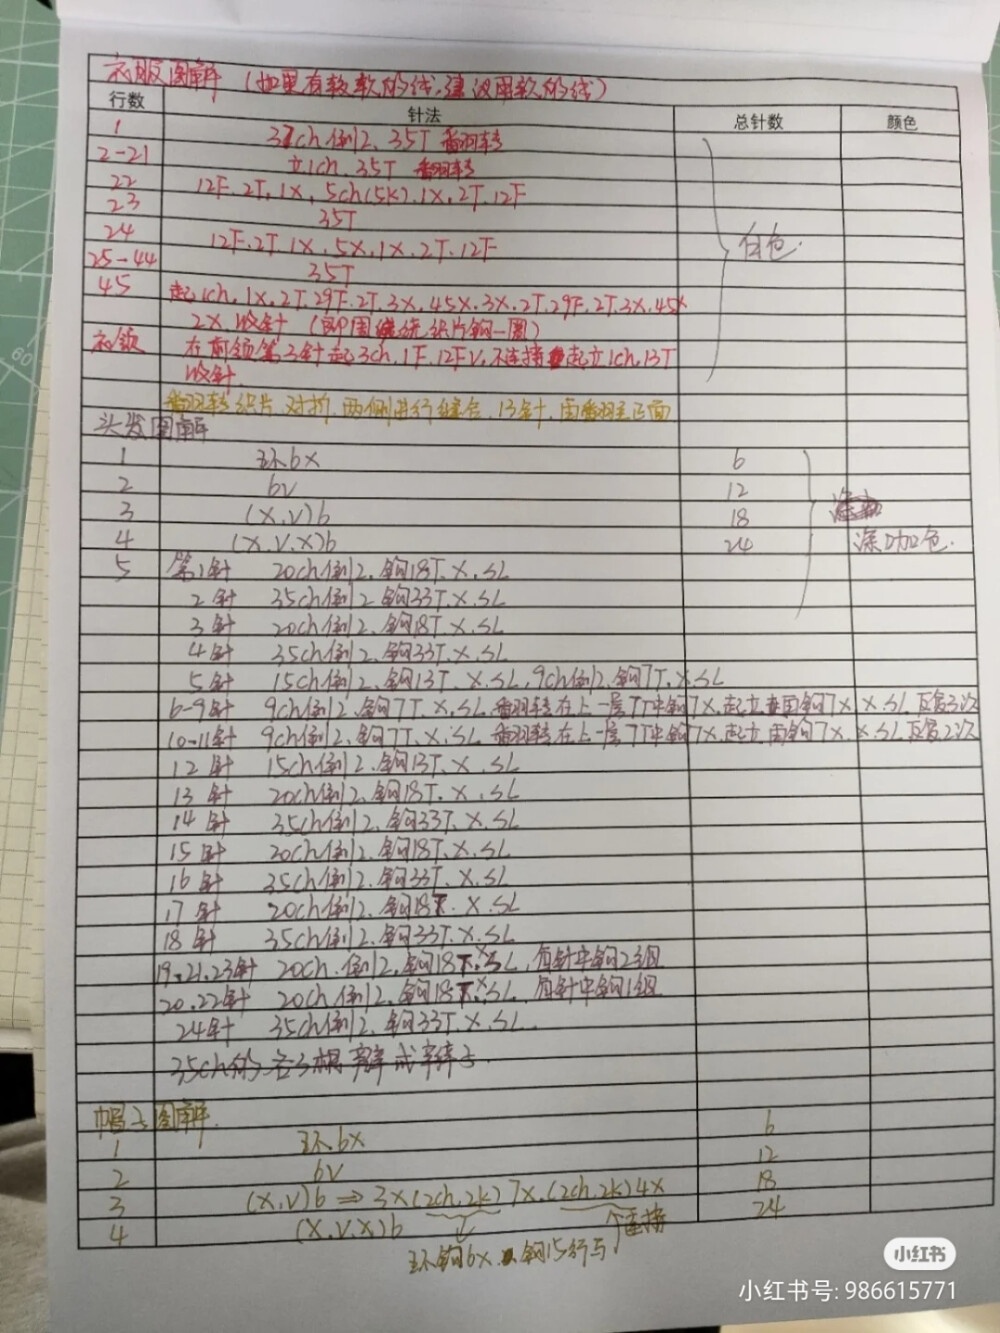 衣服图解 (如果有较软的线,建议用软的线)
行数 针法 总针数 颜色
1 37ch倒2, 35T 翻转
2-21 立1ch, 35T 翻转
22 12F.2T,1X, 5ch(5k),1X,2T,12F
23 35T
24 12F.2T,1X,5X,1X,2T.12F
白色.
25-44 35T
45 起1ch,1X,2T,29F.2T,3X,45X,3X,2T,29F,2T,3X,45X
2X,收针 (即围继续织片钩一圈)
衣领 在前领第3针起3ch,1F,12FV,不连接 起立1ch,13T
收针.
翻转织片,对折,两侧进行缝合,13针,再翻至正面
头发图解
1 环6X 6
2 6V 12
3 (X,V)6 18
4 (X,V,X)6 24 深咖色.
5 第1针 20ch倒2,钩18T,X,SL
2针 35ch倒2,钩33T,X,SL
3针 20ch倒2,钩18T,X,SL
4针 35ch倒2,钩33T,X,SL
5针 15ch倒2,钩13T,X,SL,9ch倒2,钩7T,X,SL
6-9针 9ch倒2,钩7T,X,SL,翻转在上一层7T中钩7X,起立再钩7X,X,SL反复3次
10-11针 9ch倒2,钩7T,X,SL 翻转在上一层7T中钩7X,起立再钩7X,X,SL反复2次
12针 15ch倒2,钩13T,X,SL
13针 20ch倒2,钩18T,X,SL
14针 35ch倒2,钩33T,X,SL
15针 20ch倒2,钩18T,X,SL
16针 35ch倒2,钩33T,X,SL
17针 20ch倒2,钩18T,X,SL
18针 35ch倒2,钩33T,X,SL
19.21.23针 20ch,倒2,钩18T,X,SL,每针中钩2组
20.22针 20ch倒2,钩18T,X,SL,每针中钩1组
24针 35ch倒2,钩33T,X,SL.
35ch的各3根辫成辫子.
帽子图解.
1 环6X 6
2 6V 12
3 (X,V)6 ⇒ 3X(2ch,2k)7X,(2ch,2k)4X 18
4 (X,V,X)6 24
环钩6X,钩15行与↑连接
小红书
小红书号: 986615771